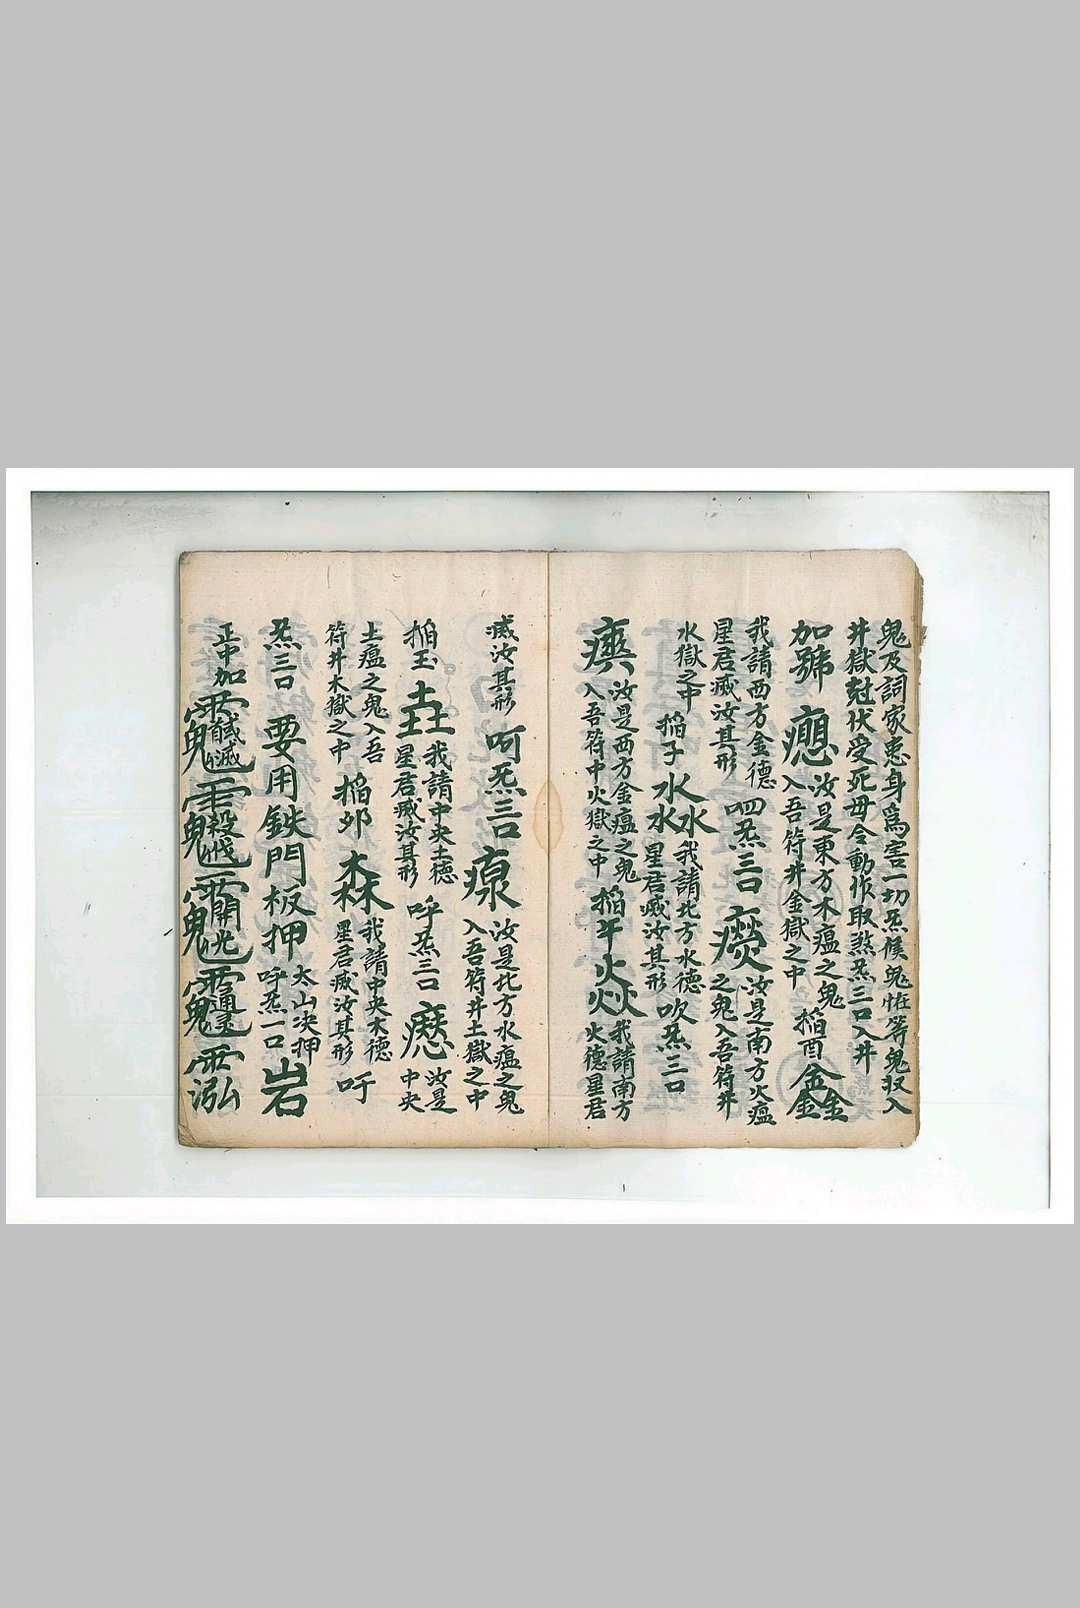 鬼及詞家患身為害一切炁候鬼怪等鬼収入
井獄尅伏受死毋令動作取煞炁三口入井
加號
汝是東方木瘟之鬼
入吾符井金獄之中
掐酉
金金金
我請西方金德
星君滅汝其形
呬炁三口
汝是南方火瘟
之鬼入吾符井
水獄之中
掐子
水水水
我請北方水德
星君滅汝其形
吹炁三口
汝是西方金瘟之鬼
入吾符中火獄之中
掐午
焱
我請南方
火德星君
滅汝其形
呵炁三口
汝是北方水瘟之鬼
入吾符井土獄之中
掐玉
垚
我請中央土德
星君滅汝其形
呼炁三口
汝是
中央
土瘟之鬼入吾
符井木獄之中
掐卯
森
我請中央木德
星君滅汝其形
吁
炁三口
要用鉄門板押
太山决押
呼炁一口
岩
正中加